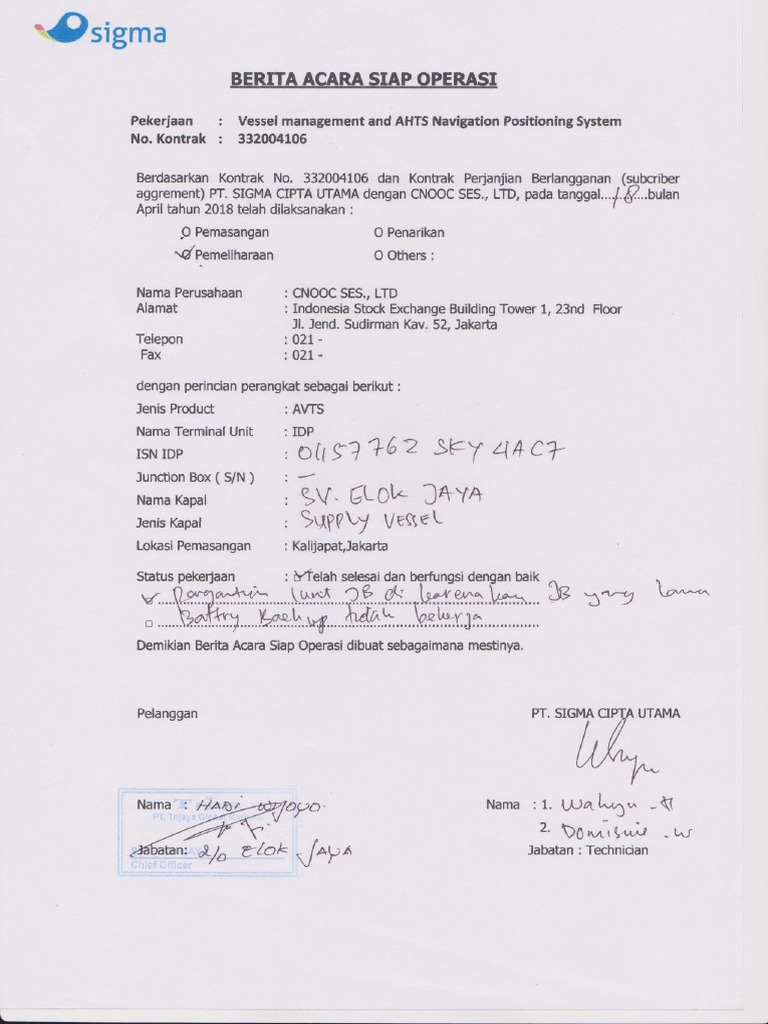 sigma
BERITA ACARA SIAP OPERASI
Pekerjaan : Vessel management and AHTS Navigation Positioning System
No. Kontrak : 332004106
Berdasarkan Kontrak No. 332004106 dan Kontrak Perjanjian Berlangganan (subcriber
aggrement) PT. SIGMA CIPTA UTAMA dengan CNOOC SES., LTD, pada tanggal....18....bulan
April tahun 2018 telah dilaksanakan :
O Pemasangan O Penarikan
O Pemeliharaan O Others :
Nama Perusahaan : CNOOC SES., LTD
Alamat : Indonesia Stock Exchange Building Tower 1, 23nd Floor
Jl. Jend. Sudirman Kav. 52, Jakarta
Telepon : 021 -
Fax : 021 -
dengan perincian perangkat sebagai berikut :
Jenis Product : AVTS
Nama Terminal Unit : IDP
ISN IDP : 01157762 SKY 4AC7
Junction Box ( S/N ) : —
Nama Kapal : SV. ELOK JAYA
Jenis Kapal : SUPPLY VESSEL
Lokasi Pemasangan : Kalijapat,Jakarta
Status pekerjaan : Telah selesai dan berfungsi dengan baik
Pergantian 1 unit JB di karenakan JB yang lama
Battry Backup tidak bekerja
Demikian Berita Acara Siap Operasi dibuat sebagaimana mestinya.
Pelanggan PT. SIGMA CIPTA UTAMA
Nama : HADI Nama : 1. Wahyu .H
PT. Trijaya Global
2. .W
Jabatan: 2/O ELOK JAYA Jabatan : Technician
Chief Officer